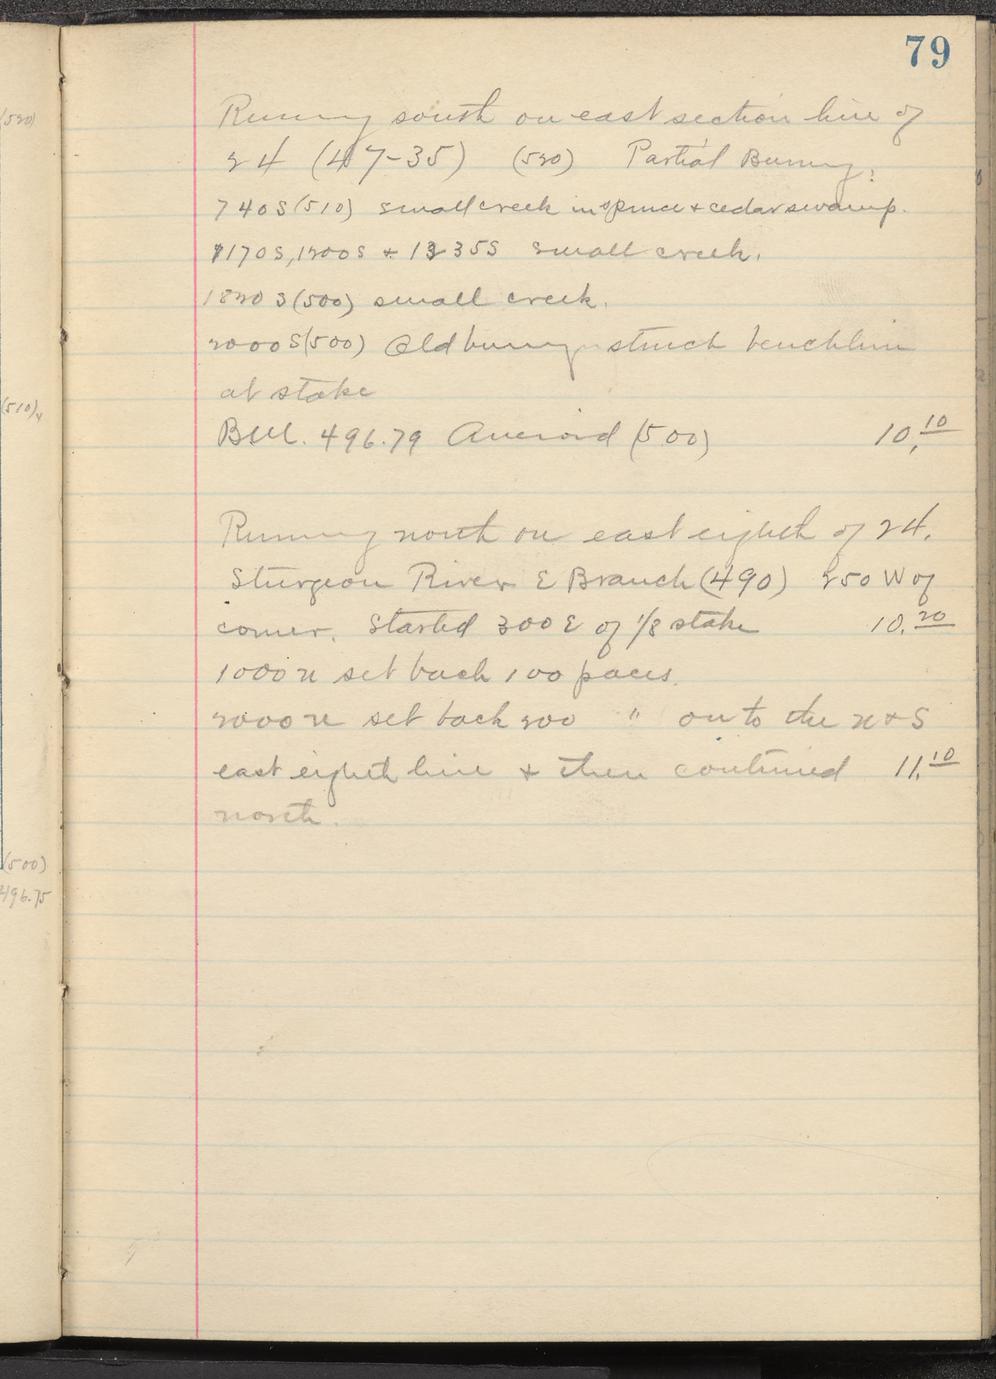 79
(520)
Running south on east section line of
24 (47-35) (520) Partial Burning.
740 S (510) small creek in spruce + cedar swamp.
1170 S, 1200 S + 1335 S small creek.
1820 S (500) small creek.
2000 S (500) Old burning struck benchline
at stake
B.M. 496.79 Aneroid (500) 10.10
(510)
Running north on east eighth of 24.
Sturgeon River E Branch (490) 250 W of
corner. Started 300 E of 1/8 stake 10.20
1000 N set back 100 paces.
2000 N set back 200 " on to the N + S
east eighth line + then continued 11.10
north.
(500)
496.75